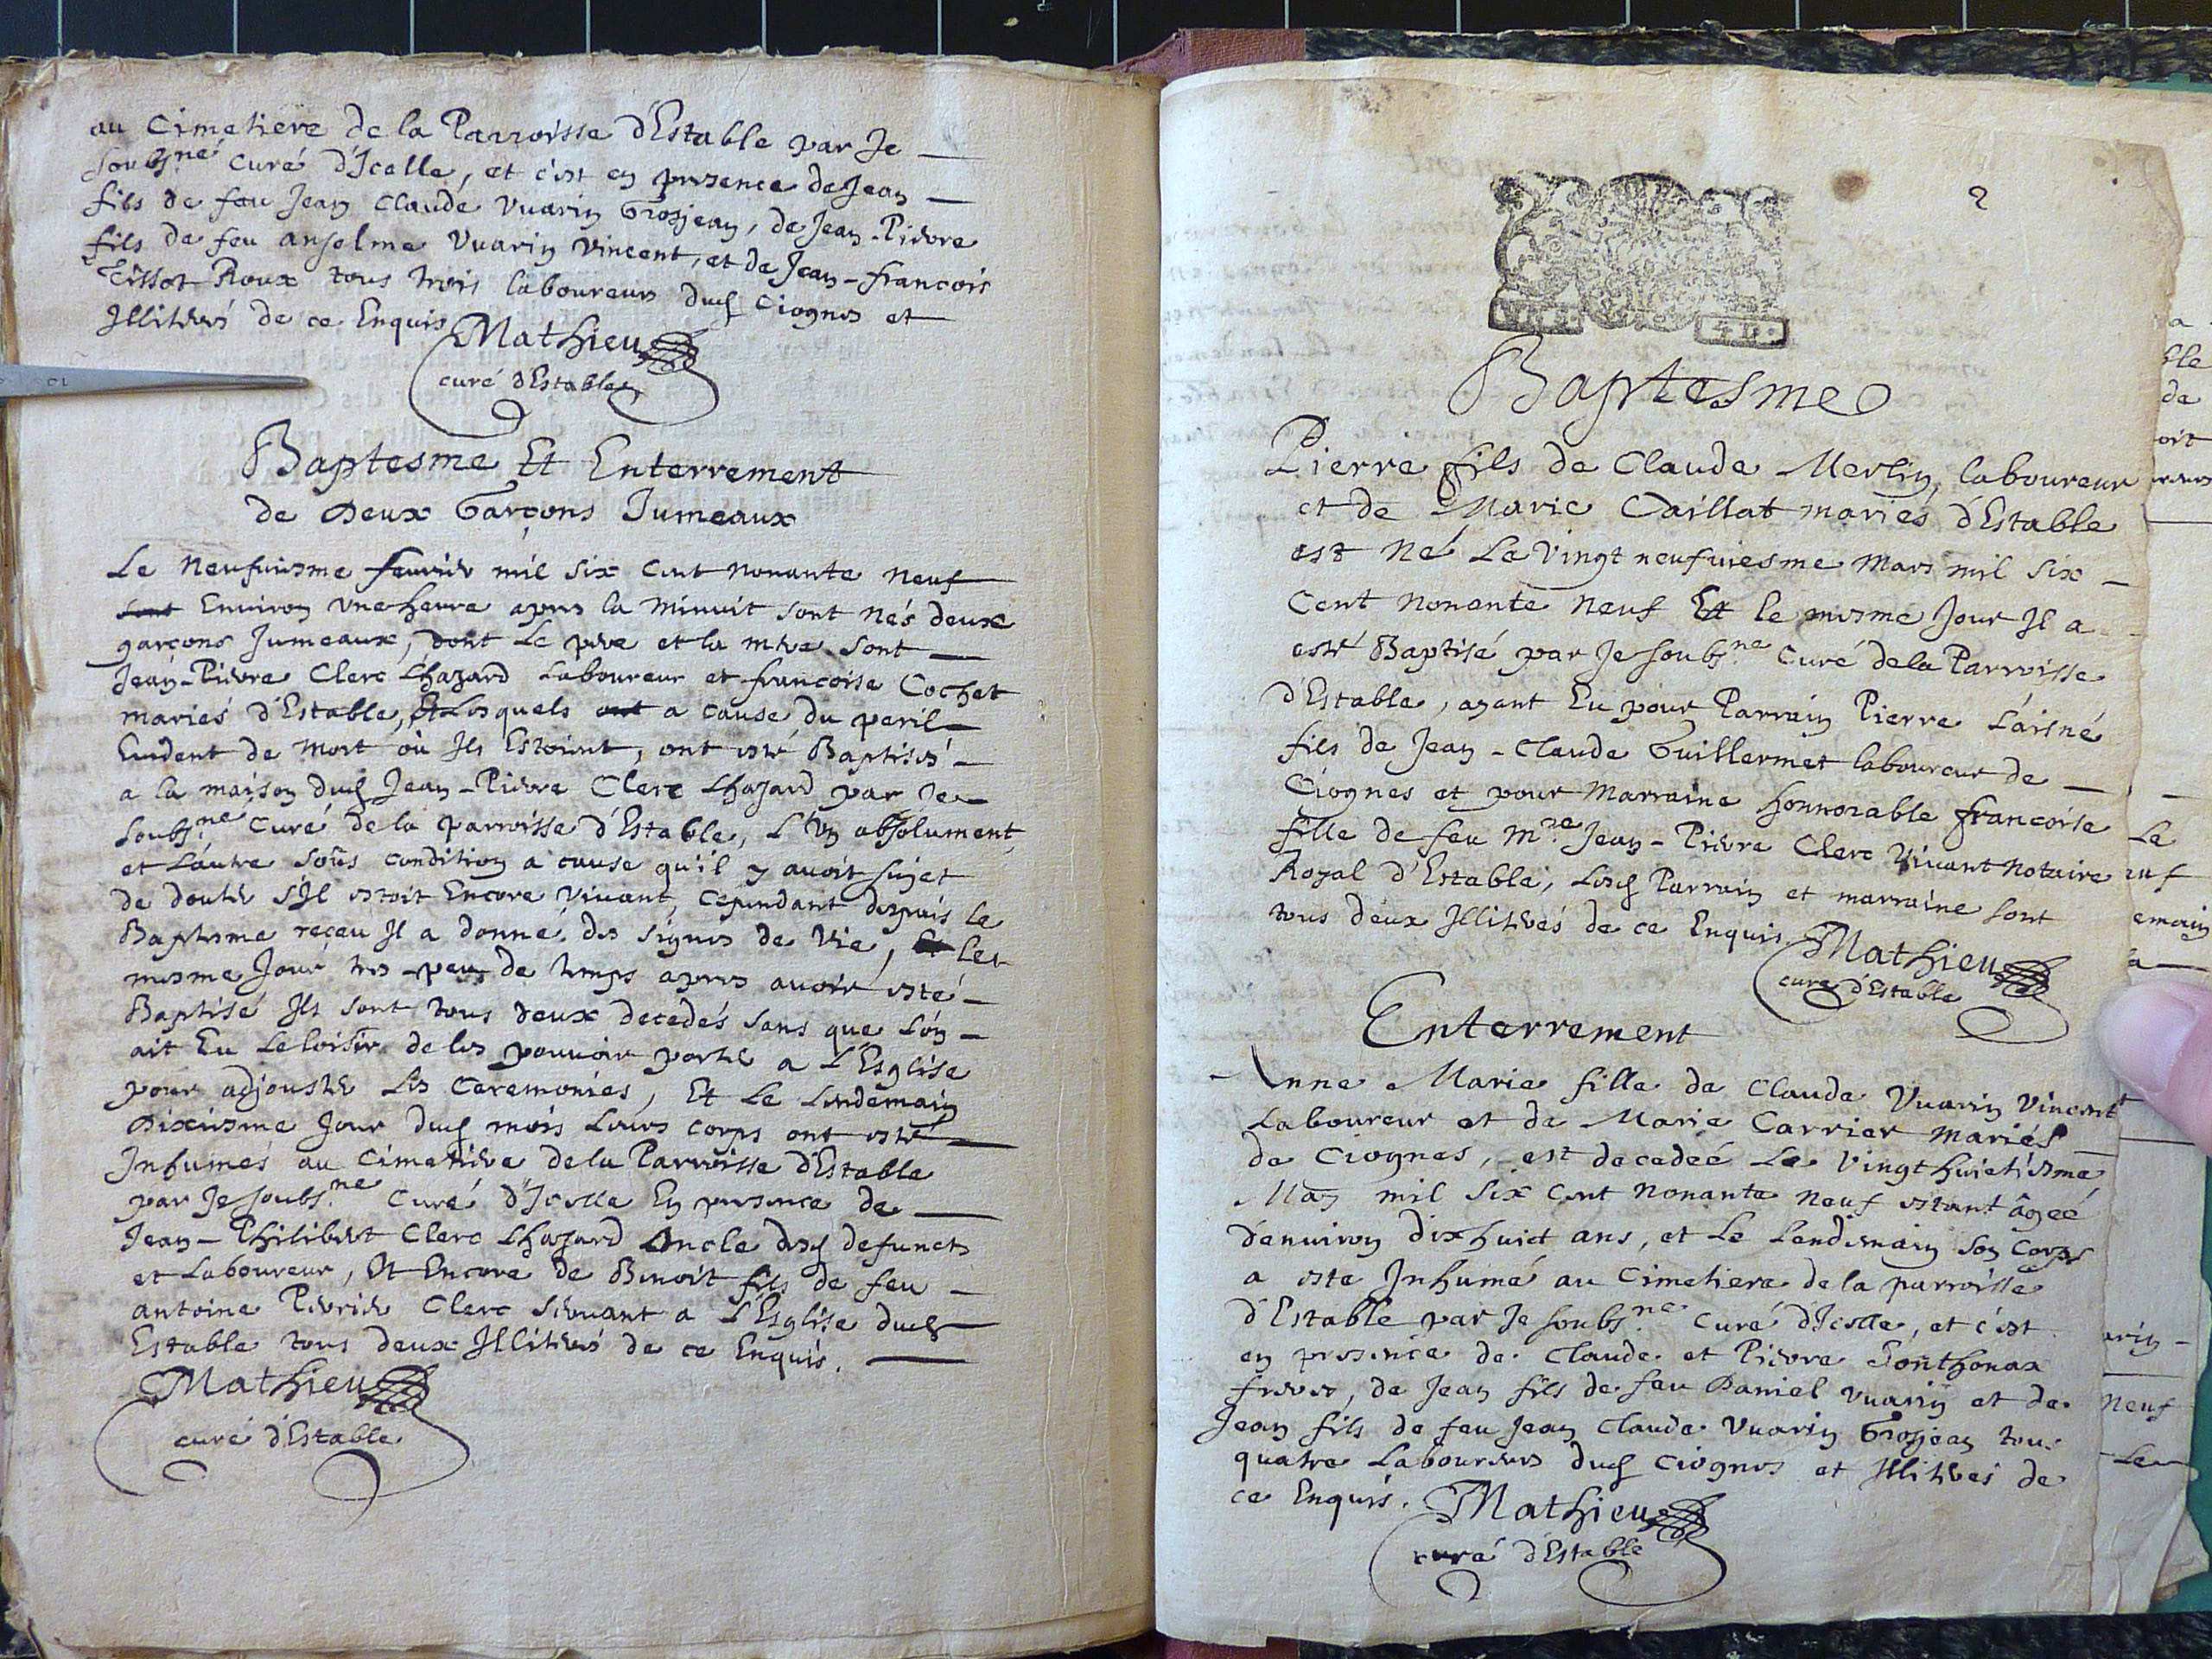 au Cimetiere de la Parroisse d'Estable par Je
soubs.né Curé d'Icelle, et c'est en presence de Jean
fils de feu Jean Claude Vuarin Grosjean, de Jean-Pierre
fils de feu anselme Vuarin Vincent, et de Jean-francois
Tissot Roux tous trois laboureurs dud Ciognes et
Illiterés de ce Enquis
Mathieu
curé d'Estable
Baptesme Et Enterrement
de Deux Garçons Jumeaux
Le Neufuiesme feurier mil six cent nonante neuf
sont Environ vne heure apres la Minuit sont nés deux
garçons Jumeaux, dont Le pere et la mere sont
Jean-Pierre Clerc Lhazard Laboureur et francoise Cochet
mariés d'Estable, Et Lesquels ont a cause du peril
Euident de Mort où Ils Estoient, ont esté Baptisés
a la maison dud Jean-Pierre Clerc Lhazard par Je
soubs.né Curé de la parroisse d'Estable, L'Vn absolument,
et L'autre soûs condition a cause qu'il y avoit sujet
de douter s'Il estoit Encore Viuant, Cependant despuis le
Baptesme reçeu Il a donné des signes de Vie, Et Le
mesme Jour tres-peu de temps apres auoir esté
Baptisé Ils sont tous deux decedés sans que L'on
ait Eu Le loisir de les pouuoir porter a L'Esglise
pour adjouster Les Ceremonies, Et Le Lendemain
Dixiesme Jour dud mois Leurs corps ont esté
Inhumés au Cimetiere de la Parroisse d'Estable
par Je soubs.né Curé d'Icelle En presence de
Jean-Philibert Clerc Lhazard Oncle desd defuncts
et Laboureur, Et Encore de Benoit fils de feu
antoine Pierrier Clerc seruant a L'Esglise dud
Estable tous deux Illiterés de ce Enquis.
Mathieu
curé d'Estable
2
Baptesme
Pierre fils de Claude Merlin, laboureur
et de Marie Caillat mariés d'Estable
est né Le Vingt neufuiesme Mars mil six
Cent nonente neuf Et le mesme Jour Il a
esté Baptisé par Je soubs.né Curé de la Parroisse
d'Estable, ayant Eu pour Parrain Pierre L'aisné
fils de Jean-Claude Guillermet laboureur de
Ciognes et pour Marraine honnorable francoise
fille de feu M.re Jean-Pierre Clerc Viuant Notaire
Royal d'Estable, Lesd Parrain et marraine sont
tous deux Illiterés de ce Enquis.
Mathieu
curé d'Estable
Enterrement
Anne Marie fille de Claude Vuarin Vincent
Laboureur et de Marie Carrier Mariés
de Ciognes, est decedeé Le Vingt huictiesme
May mil six cent nonante neuf estant âgeé
d'enuiron dixhuict ans, et Le Lendemain son Corps
a esté Inhumé au Cimetiere de la parroisse
d'Estable par Je soubs.né Curé d'Icelle, et c'est
en presence de Claude et Pierre Sonthonax
freres, de Jean fils de feu Daniel Vuarin et de
Jean fils de feu Jean Claude Vuarin Grosjean tous
quatre Laboureurs dud Ciognes et Illiterés de
ce Enquis.
Mathieu
curé d'Estable